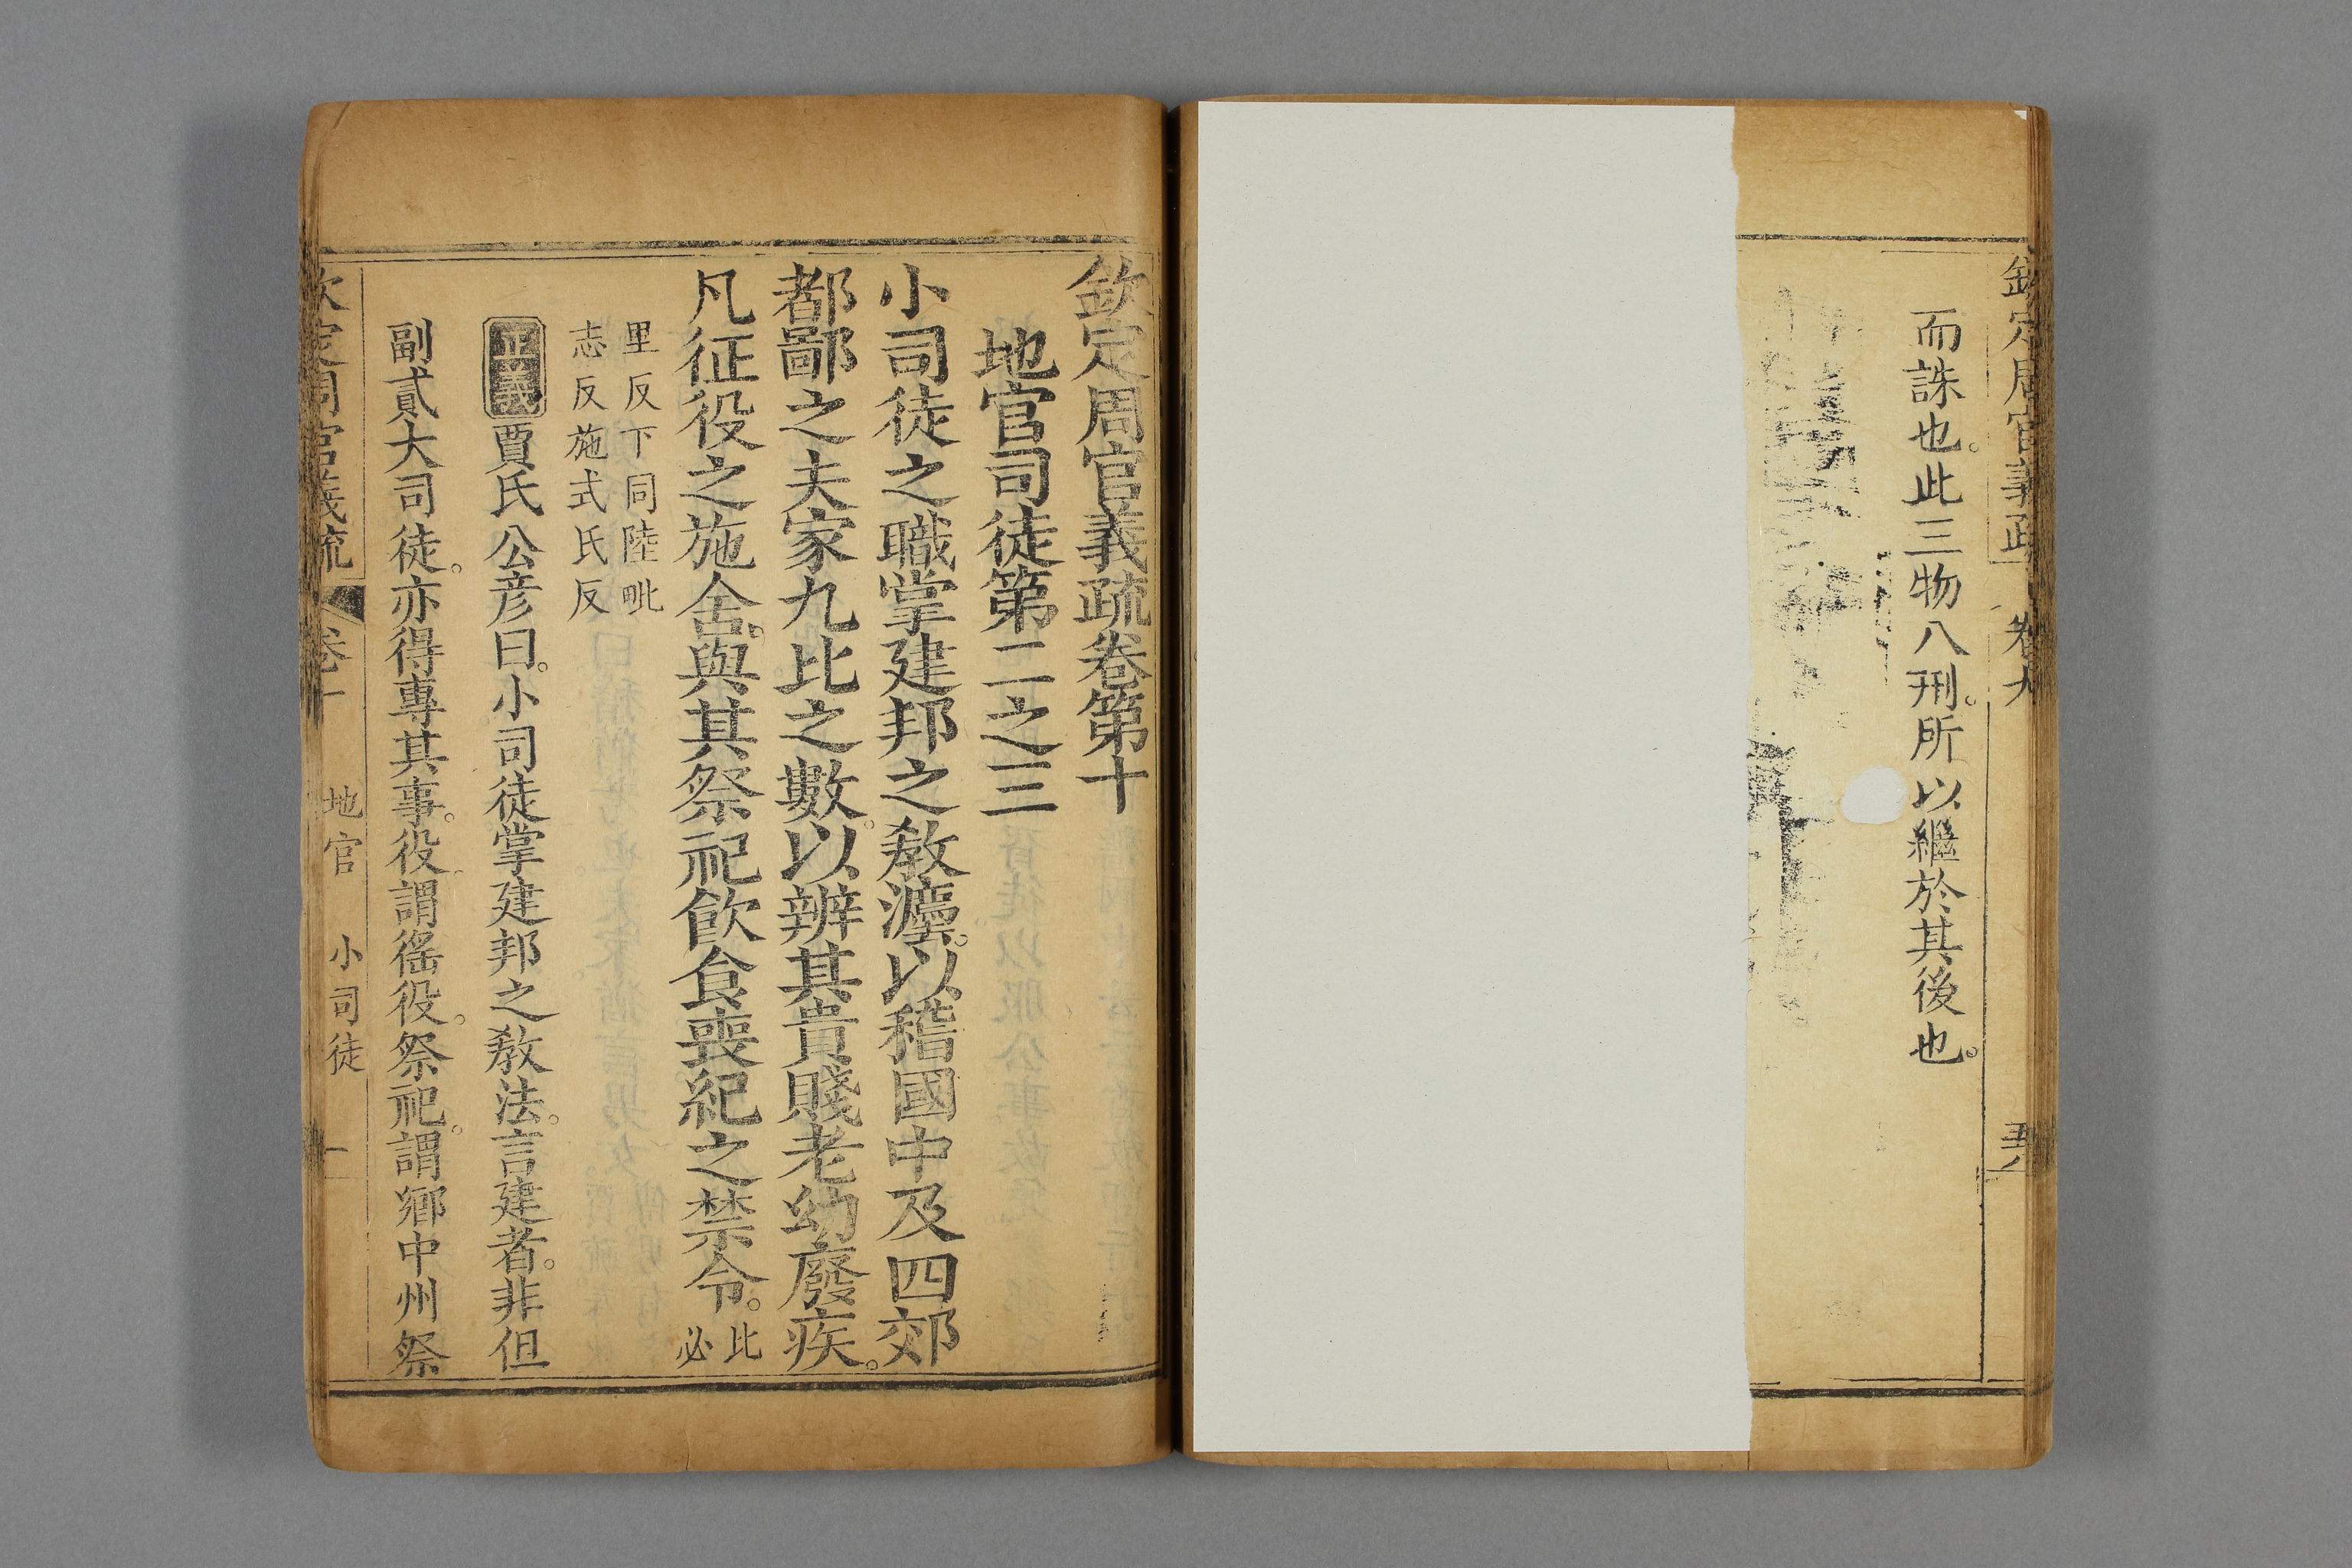 欽定周官義疏 卷九 五八
而誅也。此三物八刑。所以繼於其後也。
欽定周官義疏卷第十
地官司徒第二之三
小司徒之職掌建邦之敎灋。以稽國中及四郊
都鄙之夫家九比之數。以辨其貴賤老幼廢疾。
凡征役之施舍。與其祭祀飲食喪紀之禁令。比
必
里反下同陸毗
志反施式氏反
正義賈氏公彦曰。小司徒掌建邦之敎法。言建者。非但
副貳大司徒。亦得專其事。役謂徭役。祭祀。謂鄉中州祭
欽定周官義疏 卷十 地官 小司徒 一